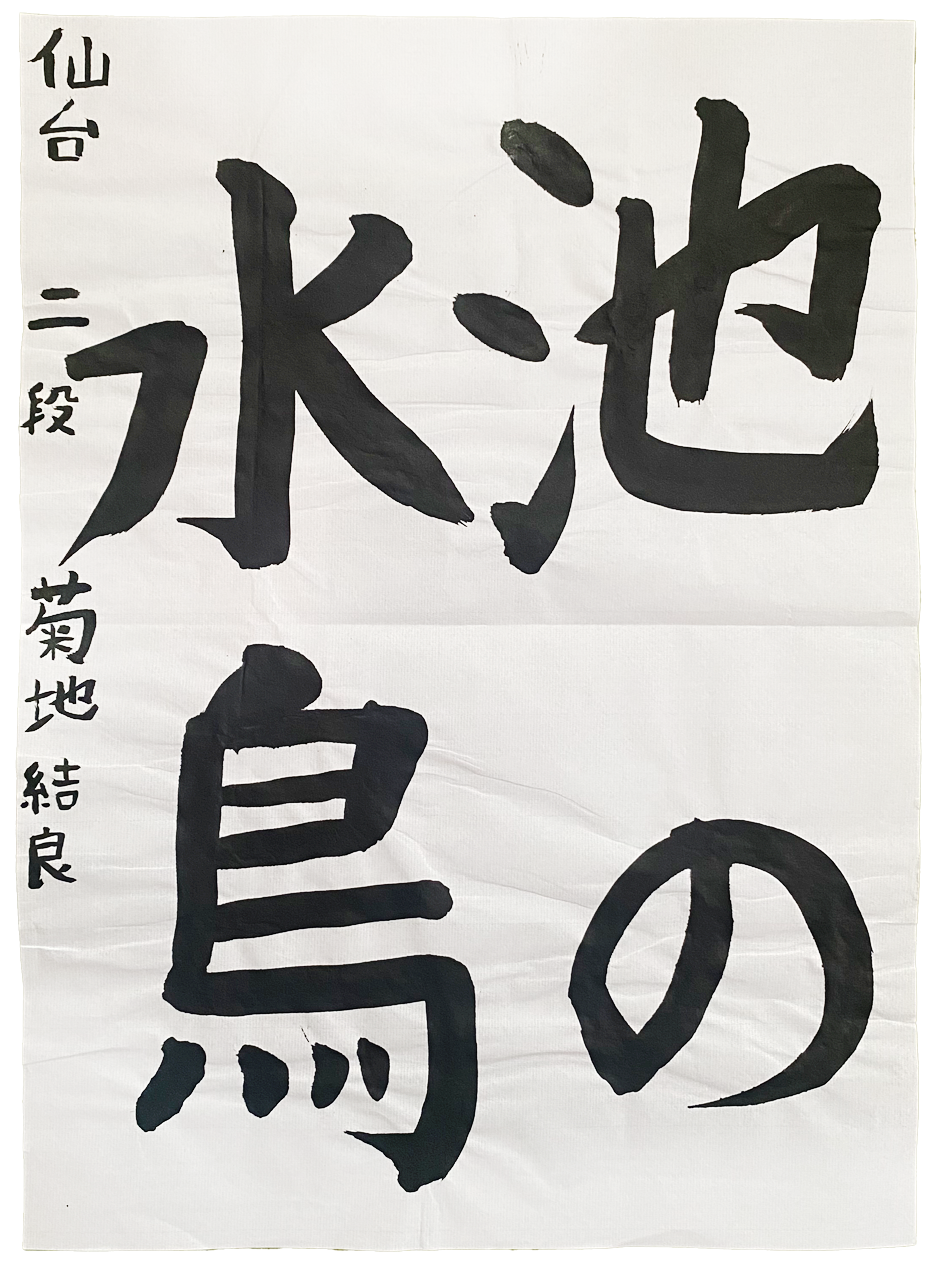 池の
水鳥
仙台 二段 菊地 結良